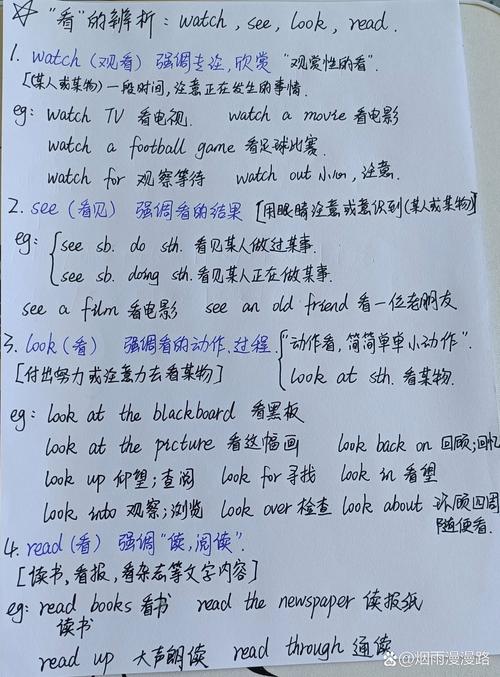 ☆ "看"的辨析：watch, see, look, read.
1. watch (观看) 强调专注, 欣赏 "观赏性的看".
[(某人或某物) 一段时间, 注意正在发生的事情.
eg: watch TV 看电视. watch a movie 看电影
watch a football game 看足球比赛.
watch for 观察等待 watch out 小心, 注意.
2. see (看见) 强调看的结果 [用眼睛注意或意识到(某人或某物)]
eg: see sb. do sth. 看见某人做过某事.
see sb. doing sth. 看见某人正在做某事.
see a film 看电影 see an old friend 看一位老朋友
3. look (看) 强调看的动作, 过程. "动作看, 简简单单小动作".
[付出努力或注意力去看某物] look at sth. 看某物.
eg: look at the blackboard 看黑板
look at the picture 看这幅画 look back on 回顾; 回忆
look up 仰望; 查阅 look for 寻找 look in 看望
look into 观察; 浏览 look over 检查 look about 环顾四周
随便看.
4. read (看) 强调 "读, 阅读".
[读书, 看报, 看杂志等文字内容]
eg: read books 看书 read the newspaper 读报纸
读书
read up 大声朗读 read through 通读
@烟雨漫漫路